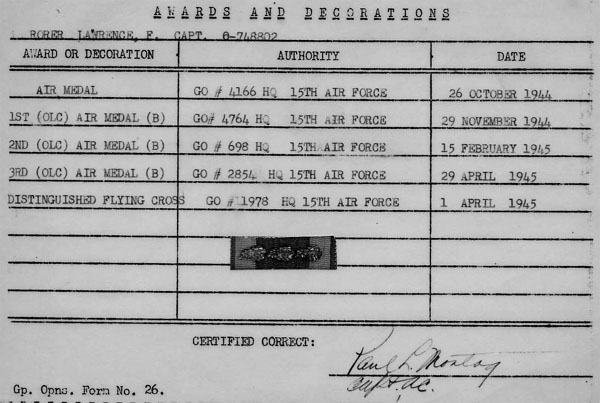 AWARDS AND DECORATIONS
RORER LAWRENCE, F. CAPT. 0-748802
AWARD OR DECORATION AUTHORITY DATE
AIR MEDAL GO # 4166 HQ 15TH AIR FORCE 26 OCTOBER 1944
1ST (OLC) AIR MEDAL (B) GO# 4764 HQ 15TH AIR FORCE 29 NOVEMBER 1944
2ND (OLC) AIR MEDAL (B) GO # 698 HQ 15TH AIR FORCE 15 FEBRUARY 1945
3RD (OLC) AIR MEDAL (B) GO # 2854 HQ 15TH AIR FORCE 29 APRIL 1945
DISTINGUISHED FLYING CROSS GO # 1978 HQ 15TH AIR FORCE 1 APRIL 1945
CERTIFIED CORRECT:
Paul L. Montag
Capt, AC.
Gp. Opns. Form No. 26.